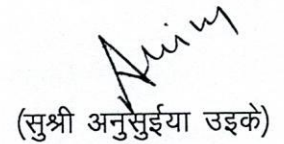 (सुश्री अनुसुईया उइके)